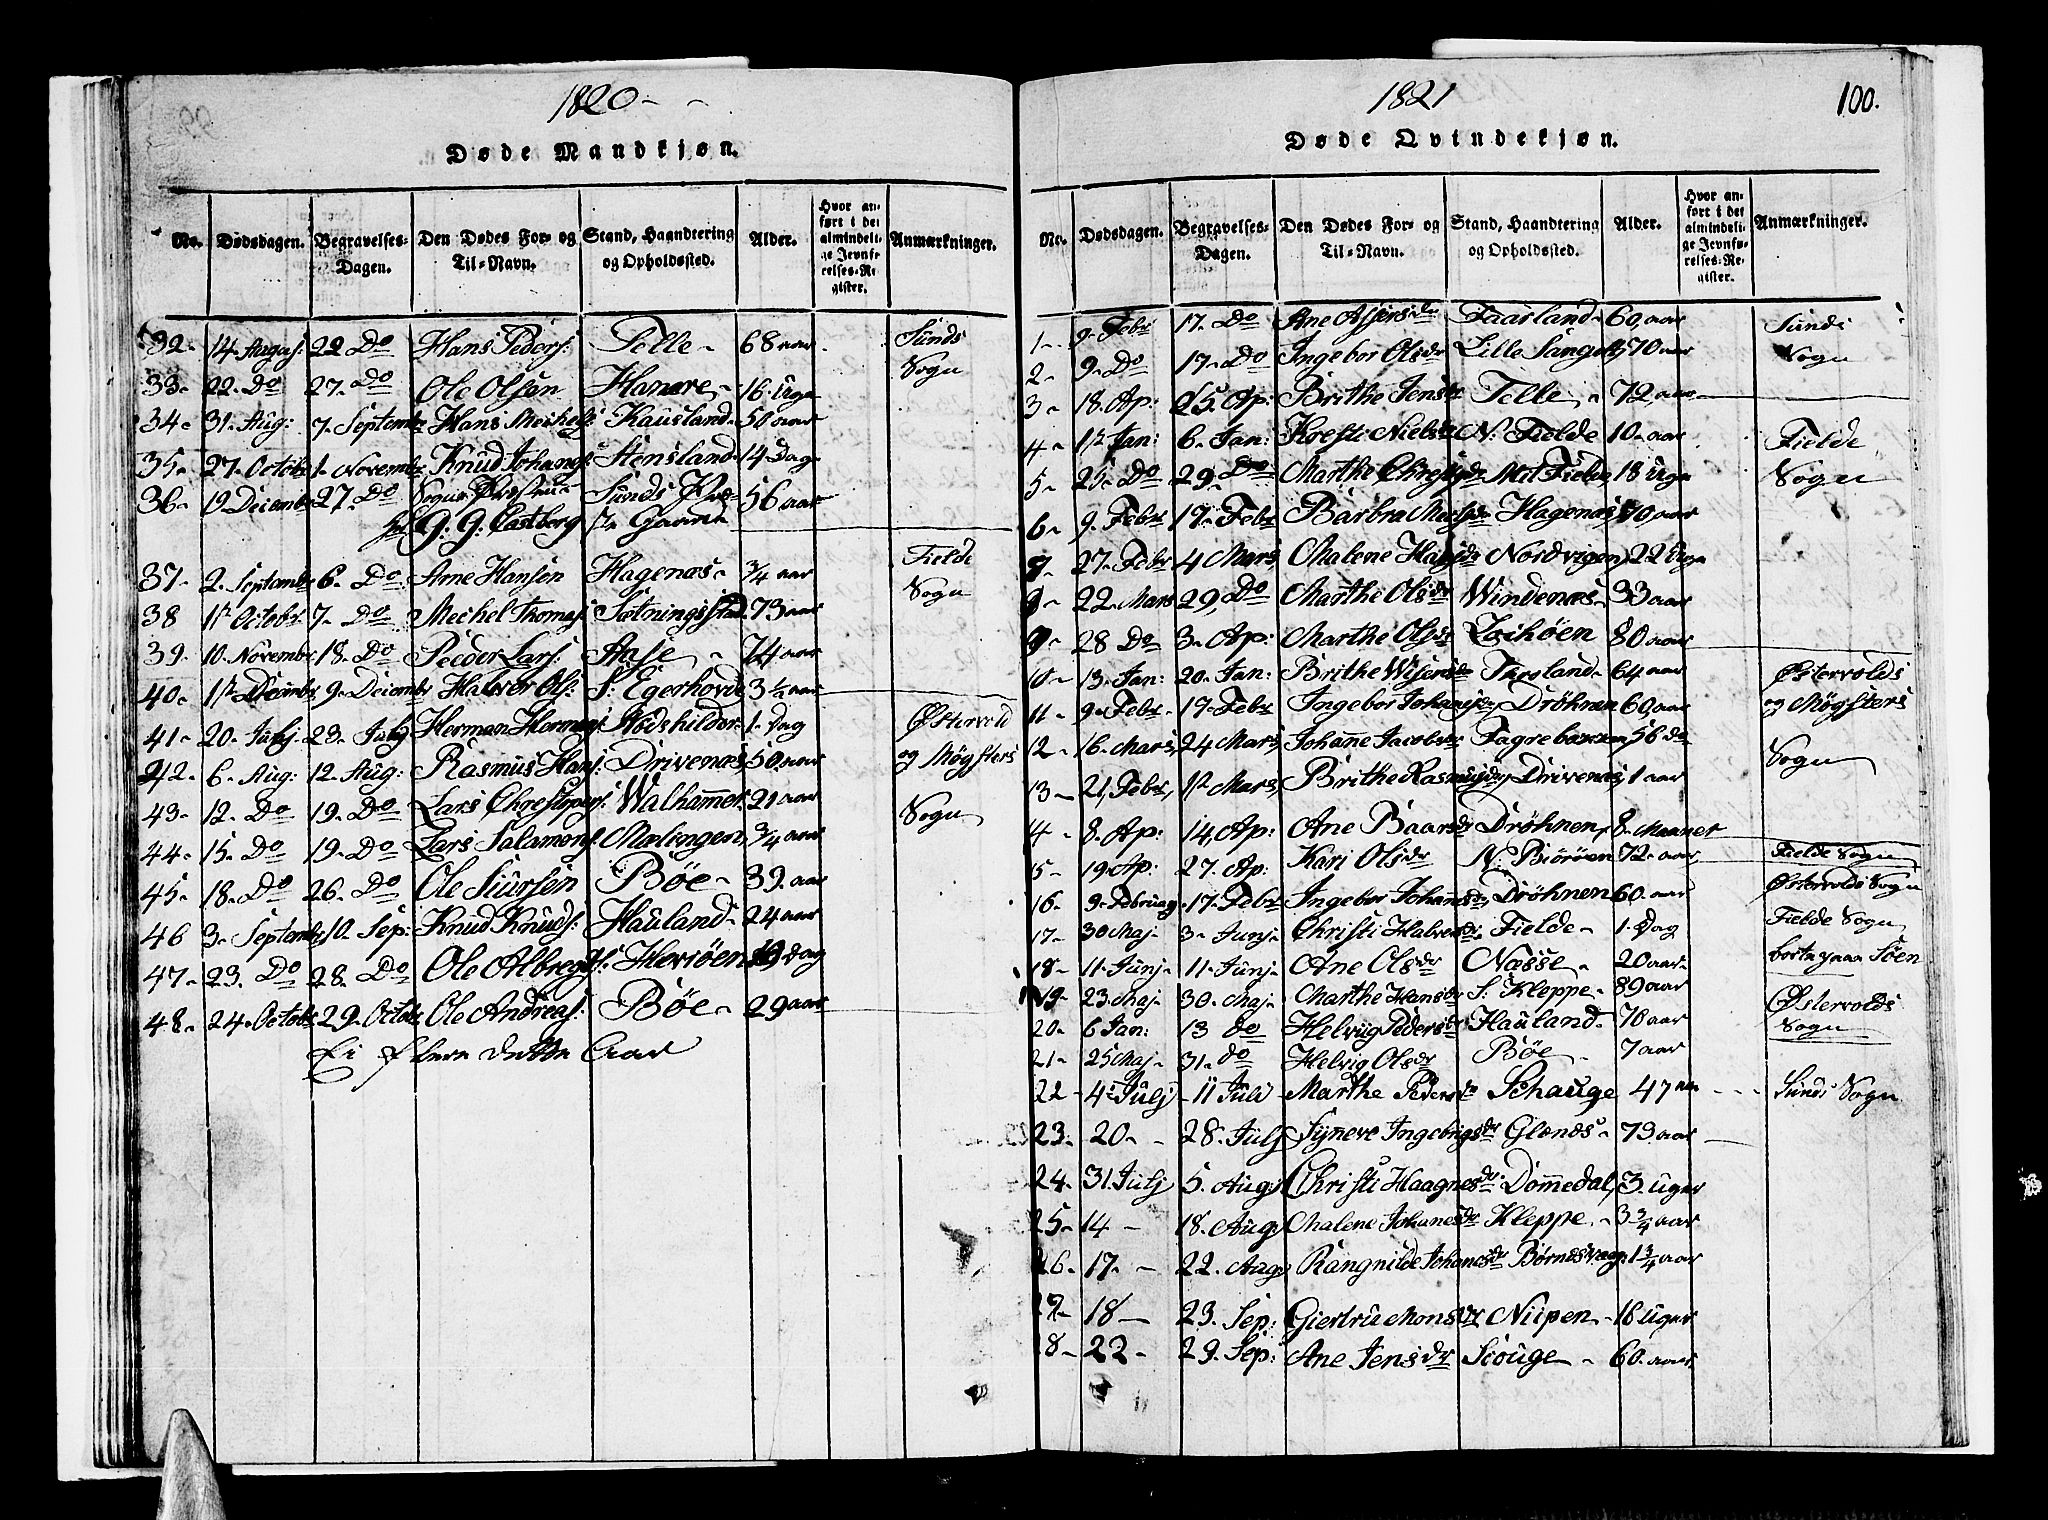 1820 - -
Døde Mandkjøn.
No. Dødsdagen. Begravelses-Dagen. Den Dødes For- og Til-Navn. Stand, Haandtering og Opholdssted. Alder. Hvor anført i det almindelige Jevnførelses-Register. Anmærkninger.
32- 14 Augus: 22 Do Hans Peders: Telle- 68 aar Sunds
33- 22- Do 27- Do Ole Olsøn 16- Uge Sogn
34- 31- Aug: 7- Septembr Hans Mechels: Kausland- 50 aar
35- 27- Octobr 1- Novembr Knud Johans: Stensland- 14 Dag
36- 19 Decembr 27- Do Sogne Præsten Sunds Præ- 56 aar
G: G: Castberg ste Gaard
37- 2- Septembr 6- Do Arne Hansøn Hagenæs- 3/4 aar Fielde
38 1st Octobr 7- Do Mechel Thomas: 73 aar Sogn
39- 10- Novembr 18- Do Peder Lars: Aase - 74 aar
40- 1st Decembr 9- Decembr Halvor Ols: S: Egerhovde 3 1/2 aar
41- 20- Julj- 23- Julj Herman Hermans: Rødshilder- 1- Dag Østervold
42- 6- Aug: 12 Aug: Rasmus Hans: Drivenæs, 50 aar og Møgsters
43- 12- Do 19- Do Lars Chrestophers: Walhammer- 21 aar Sogn
44- 15- Do 19- Do Lars Salamons: Mælingen, 3/4 aar
45- 18- Do 26- Do Ole Siursen Bøe- 39- aar
46 3- Septembr 10- Sep: Knud Knuds: Hauland- 24 aar
47- 23- Do 28- Do Ole Albregts: Heviøen 19 Dag
48- 24- Octobr 29- Octobr Ole Andreas: Bøe- 29 aar
Ei flere dette Aar
1821
100.
Døde Qvindekjøn.
No. Dødsdagen. Begravelses-Dagen. Den Dødes For- og Til-Navn. Stand, Haandtering og Opholdssted. Alder. Hvor anført i det almindelige Jevnførelses-Register. Anmærkninger.
1- 9- Febr 17- Do Ane Assersdr Taarland- 60 aar Sunds
2- 9- Do 17- Do Ingebor Olsdr Lille Sangolt, 70 aar Sogn
3- 18- Ap: 25- Ap: Brithe Jensdr Telle- 72 aar
4- 1st Jan: 6- Jan: Kresti Nielsdr N: Fielde 10- aar Fielde
5- 25- Do 29- Do Marthe Chrestdr Mit Fielde 18 Uge Sogn
6- 9- Febr 17- Febr Barbra Hagenæs, 70 aar
7- 27- Febr 4 Mars, Malene Hansdr Nordvigen, 22 Uge
8- 22- Mars 29- Do Marthe Olsdr Windenæs- 33 aar
9- 28 Do 3- Ap: Marthe Olsdr Leihøen 80 aar
10- 13- Jan: 20- Jan: Brithe Toreland- 64 aar Østervolds
11- 9- Febr- 17- Febr Ingebor Johansdr Drøhnen 60 aar og Møgsters
12- 16- Mars, 24 Mars, Johanne Jacobsdr 56 do Sogn
13- 21, Febr, 1st Mars, Brithe Rasmusdr Drivenæs, 1 aar
14- 8- Ap: 14, Ap: Ane Baarsdr Drøhnen, 8- Maanet
15- 19- Ap: 27- Ap: Kari Olsdr N: Biørøen 72- aar Fielde Sogn
16- 9- Februay- 17- Febr Ingebor Johansdr Drøhnen 60- aar Østervolds Sogn
17- 30 Maj- 3- Junj- Christi Halversdr Fielde- 1- Dag Fielde Sogn
18- 11- Junj- 11- Junj- Ane Olsdr Næsse- 20 aar- borte paa Søen
19- 23- Maj- 30- Maj- Marthe Hansdr S: Kleppe- 89 aar Østervolds
20- 6 Jan: 13 do Helvig Pedersdr Hauland- 70 aar Sogn
21- 25 Maj- 31- do Helvig Olsdr Bøe - 7 aar
22- 4de Julj - 11 Juli Marthe Pedersdr Schauge 47 aar - - - Sunds Sogn
23- 20- - 28- Julj Synneve Ingebrigtsdr Glænæs- 73 aar
24- 31. Julj 5. Aug: Christi Haagnesdr Dommedal, 3. Uger
25- 14 - 18. Aug: Malene Johansdr Kleppe. - 3 3/4 aar
26- 17- - 22. Aug: Rangnilde Johansdr Børnesvaag. 1 3/4 aar
27- 18- 23. Sep: Giertru Monsdr Niipen- 16 Uger
28- 22- 29. Sep: Ane Jensdr Siouge- 60. aar